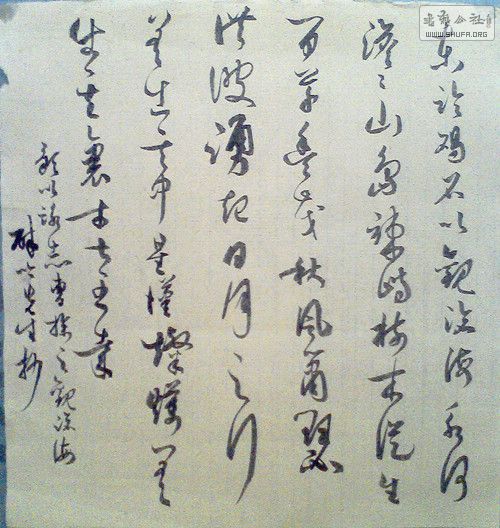 東臨碣石以觀滄海水何
澹〻山島竦峙樹木叢生
百草豐茂秋風蕭瑟
洪波湧起日月之行
若出其中星漢燦爛若
出其裏幸甚至哉
歌以詠志曹操之觀滄海
先生抄
WWW.SHUFA.ORG